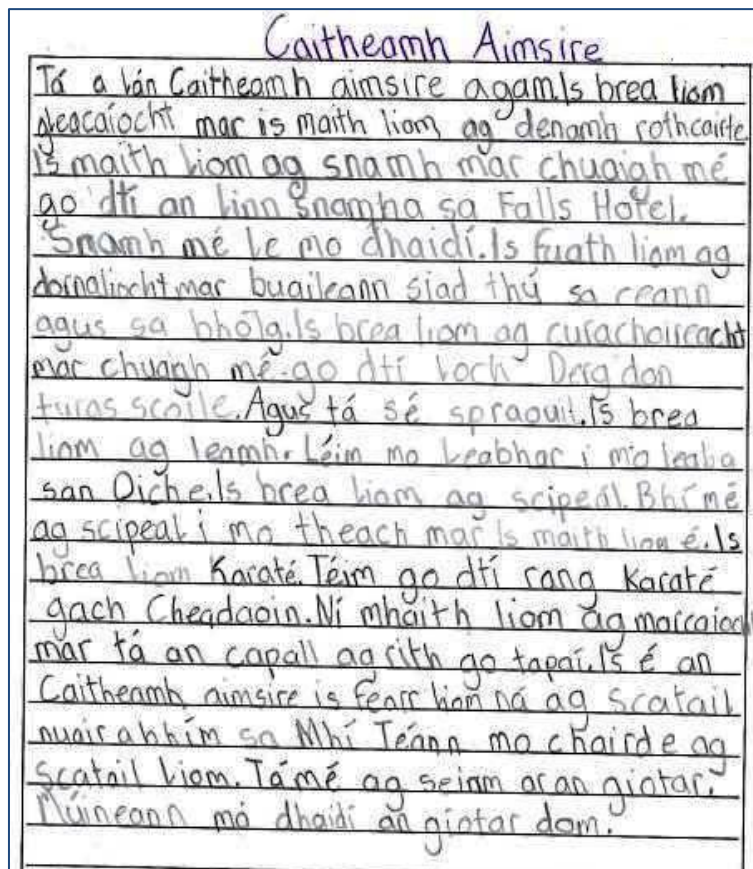 Caitheamh Aimsire
Tá a lán Caitheamh aimsire agam.Is brea liom
gleacaíocht mar is maith liom ag denamh rothcairte.
Is maith liom ag snamh mar chuaigh mé
go dtí an linn snamha sa Falls Hotel.
Snamh mé le mo dhaidí.Is fuath liom ag
dornaliocht mar buaileann siad thú sa ceann
agus sa bholg.Is brea liom ag curachoireacht
mar chuaigh mé go dtí loch Derg don
turas scoile.Agus tá sé spraouit.Is brea
liom ag leamh. Léim mo leabhar i mo leaba
san Oiche.Is brea liom ag scipeal.Bhí mé
ag scipeal i mo theach mar Is maith liom é.Is
brea liom Karaté.Téim go dtí rang Karaté
gach Cheadaoin.Ní mhaith liom ag marcaioch
mar tá an capall ag rith go tapaí.Is é an
Caitheamh aimsire is fearr liom ná ag scatail
nuair a bhím sa Mhí Téann mo chairde ag
scatail liom.Tá mé ag seinm ar an giotar.
Múineann mo dhaidí an giotar dom.